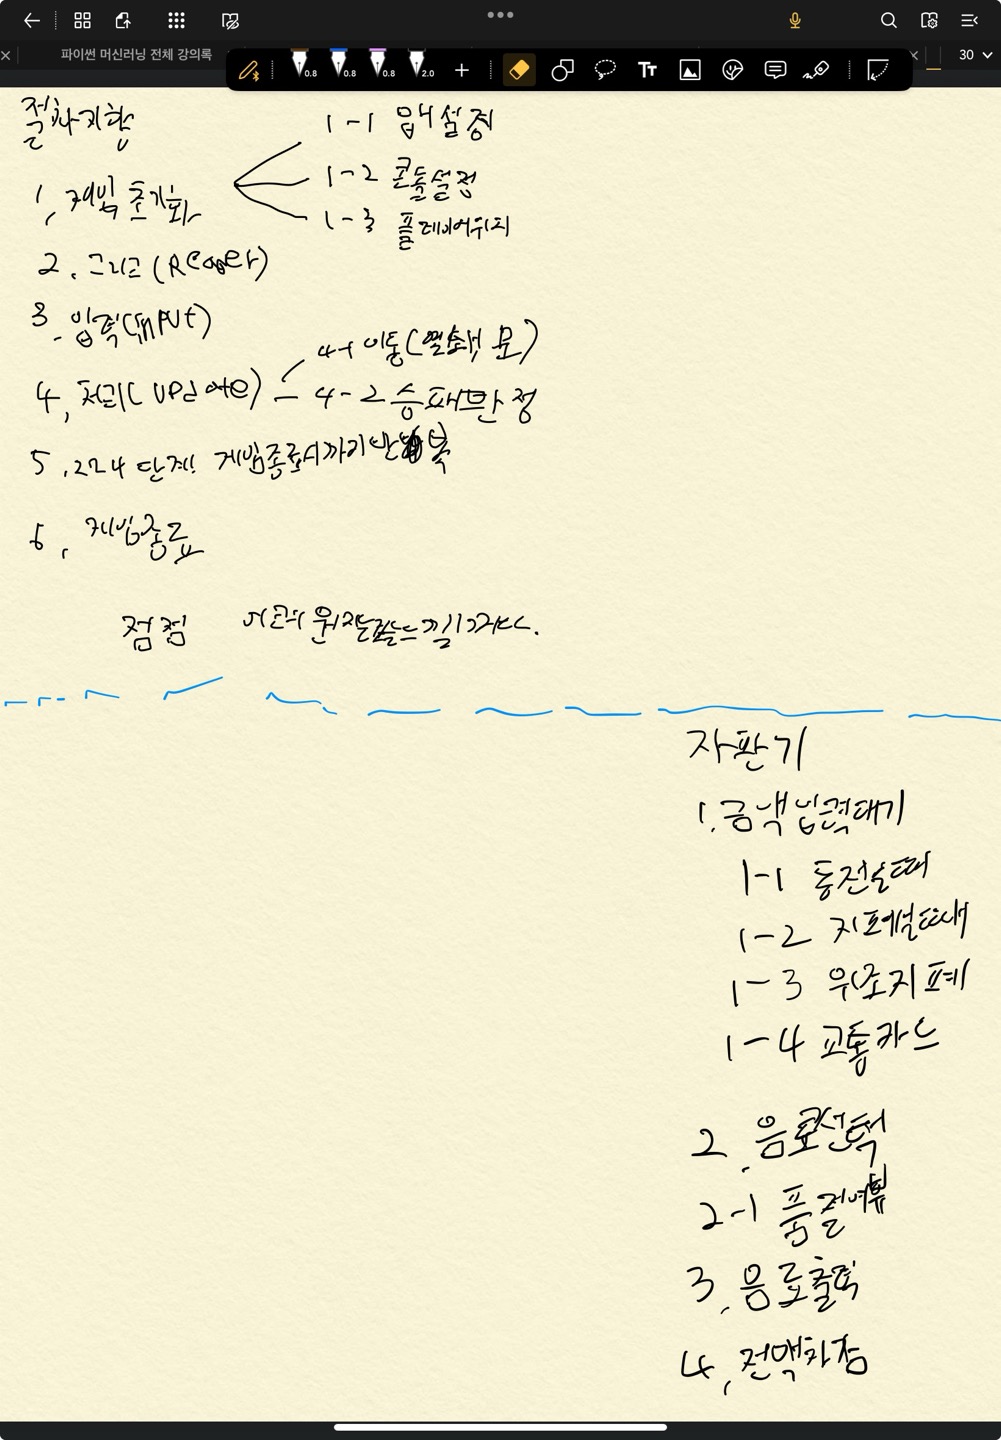 파이썬 머신러닝 전체 강의록
0.8
0.8
0.8
2.0
Tт
30
절차지향
1. 게임 초기화
1-1 맵설정
1-2 콘솔설정
1-3 플레이어위치
2. 그리고 (Render)
3. 입력(InPUt)
4. 처리(UPdate)
4-1 이동(열쇠, 문)
4-2 승패판정
5. 2~4 단계! 게임종료시까지 반복
6. 게임종료
점점
자판기
1. 금액입력대기
1-1 동전일때
1-2 지폐일때
1-3 위조지폐
1-4 교통카드
2. 음료선택
2-1 품절여부
3. 음료출력
4. 잔액차감